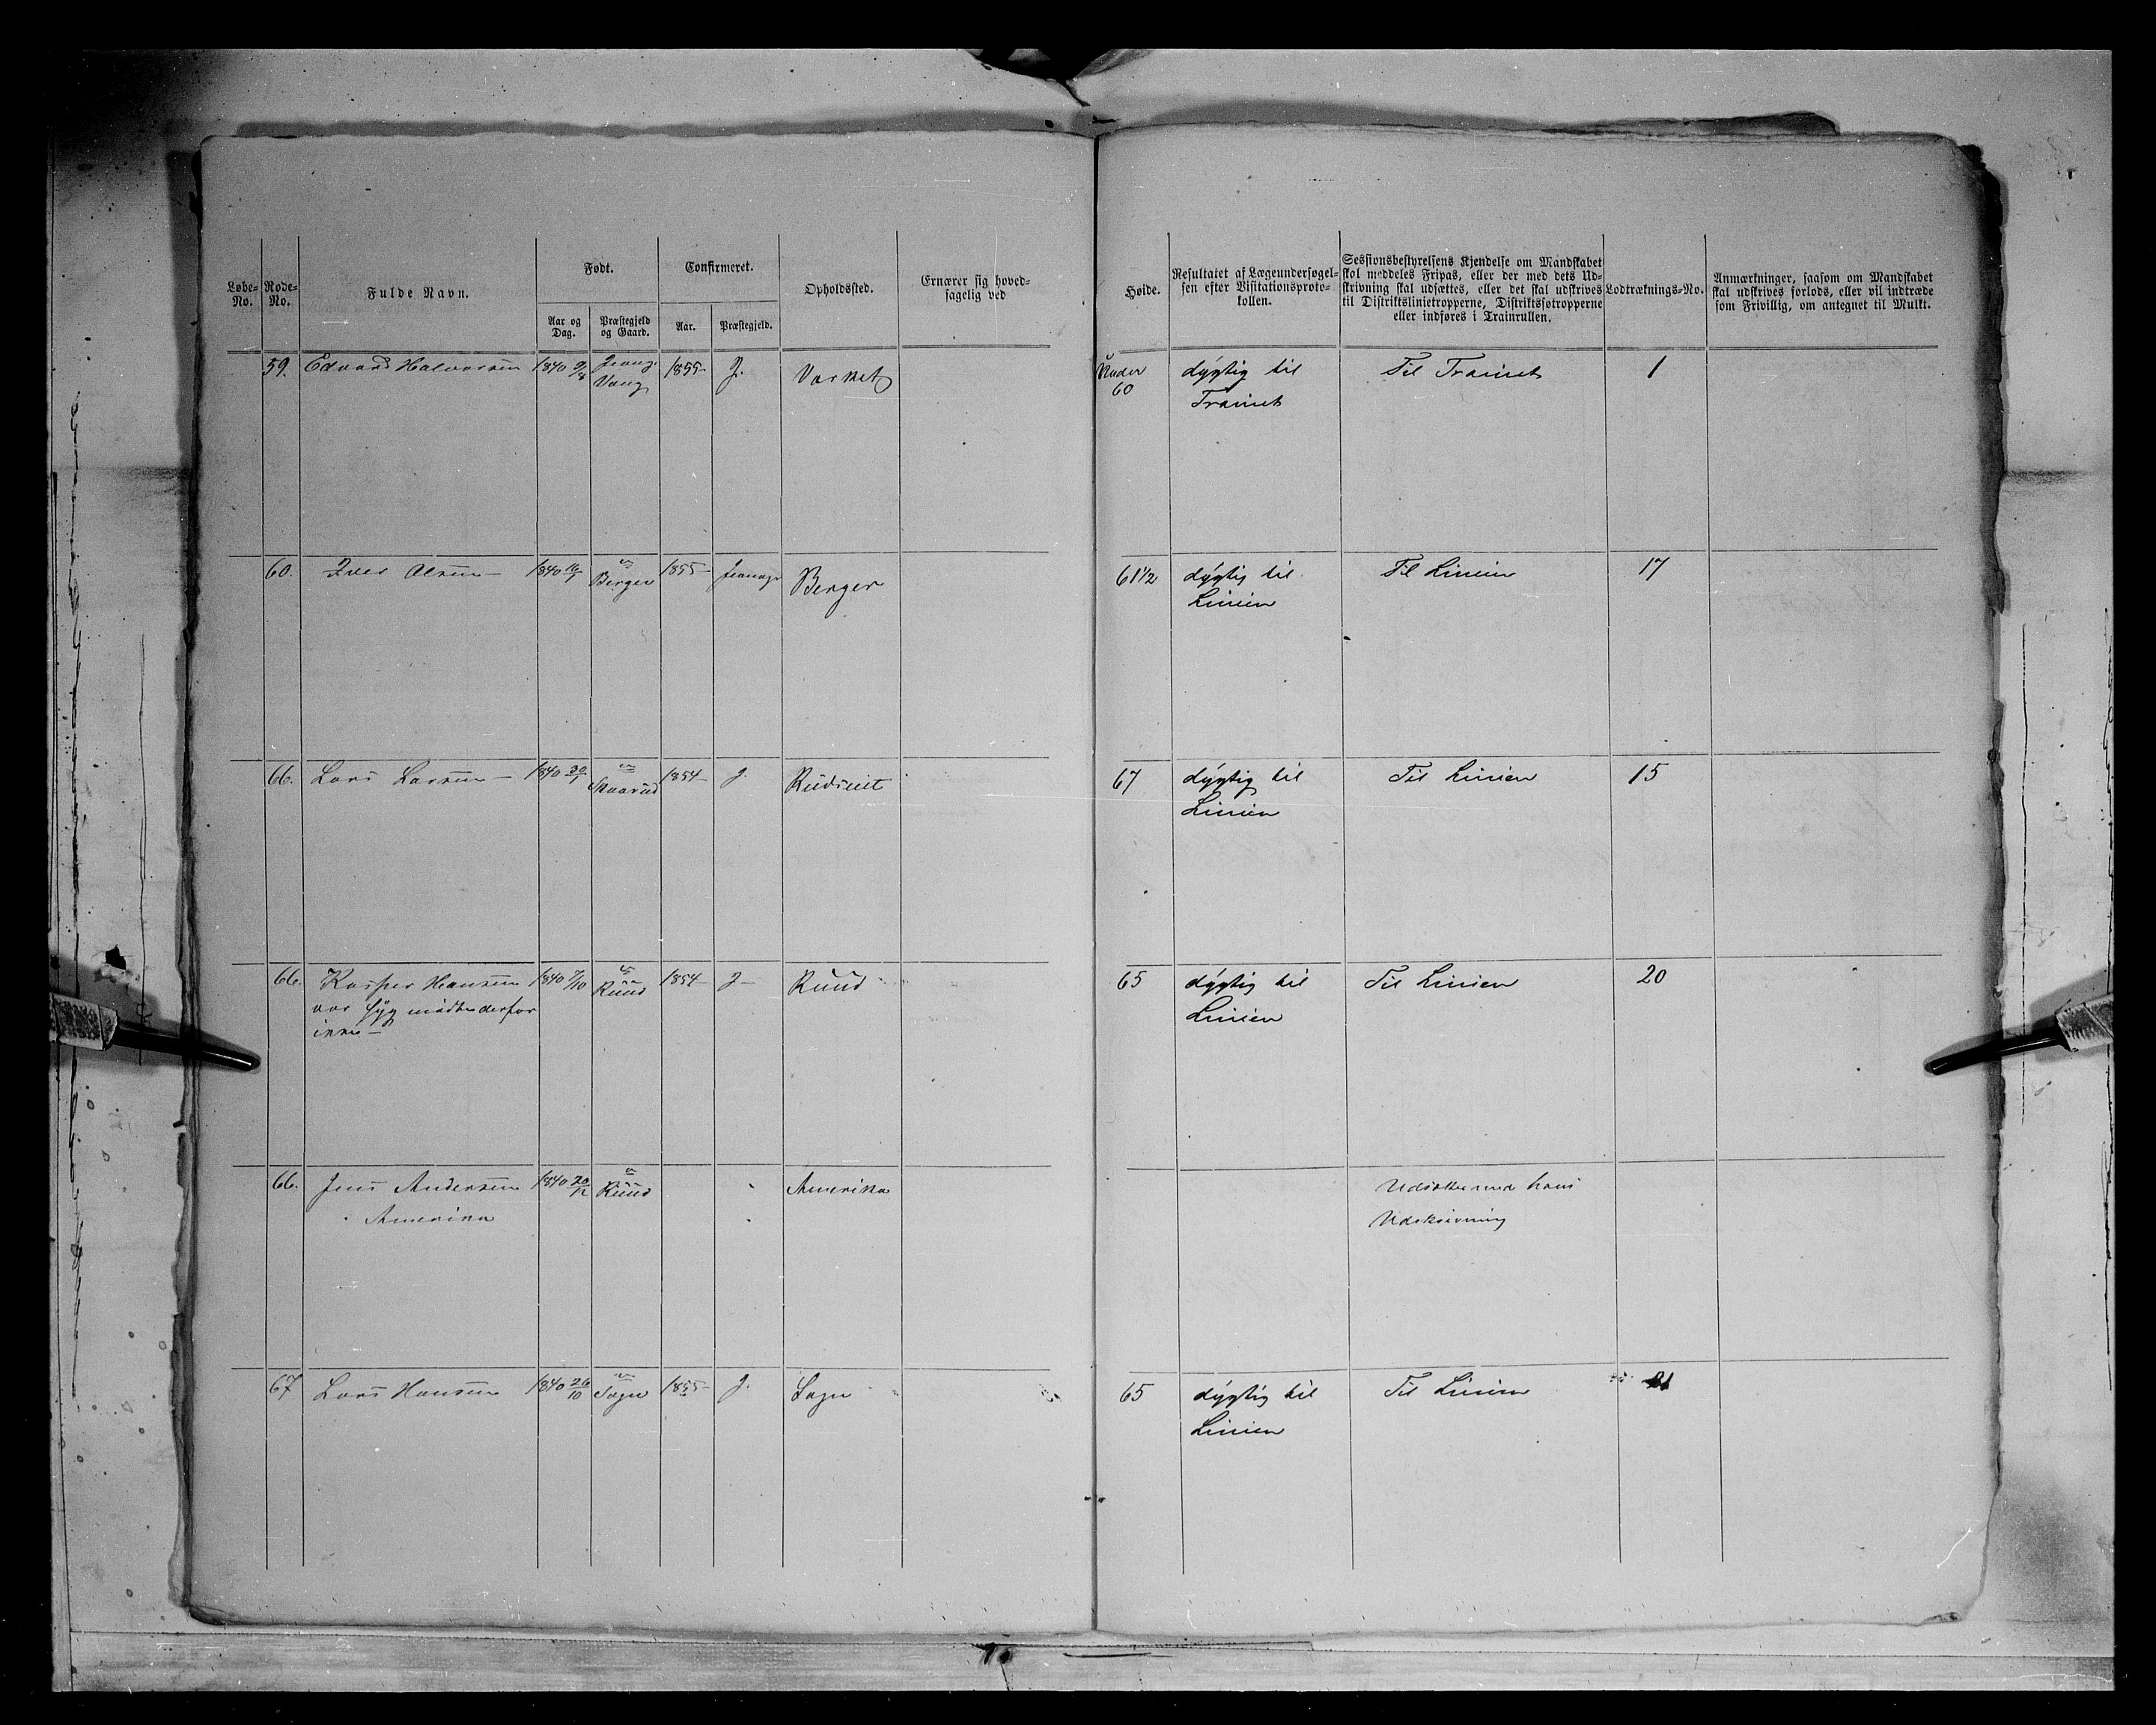 Løbe-No.
Rode-No.
Fulde Navn.
Født.
Aar og Dag.
Præstegjeld og Gaard.
Confirmeret.
Aar.
Præstegjeld.
Opholdssted.
Ernærer sig hoved-
sagelig ved
Høide.
Resultatet af Lægeundersøgel-
sen efter Visitationsproto-
kollen.
Sessionsbestyrelsens Kjendelse om Mandskabet
skal meddeles Fripas, eller der med dets Ud-
skrivning skal udsættes, eller det skal udskrives
til Distriktslinietropperne, Distriktsfotropperne
eller indføres i Trainrullen.
Lodtræknings-No.
Anmærkninger, saasom om Mandskabet
skal udskrives forlods, eller vil indtræde
som Frivillig, om antegnet til Mulkt.
59. Edvard Halvorsen 1840 9/8 Vang 1855 J. Under 60 dygtig til Til Trainet 1
Trainet
60. Iver Olsen 1840 16/1 Berger 1855 Berger 61 1/2 dygtig til Til Linien 17
Linien
66. Lars Larsen 1840 30/1 1854 J. 67 dygtig til Til Linien 15
Linien
66. Kasper Hansen 1840 7/10 Ruud 1854 J Ruud 65 dygtig til Til Linien 20
var syg mødte derfor Linien
ikke
66. Jens Andersen 1840 20/12 Ruud Amerika Udsættes med hans
Amerika Udskrivning
67 Lars Hansen 1840 26/10 Sogn 1855 J. Sogn 65 dygtig til Til Linien
Linien